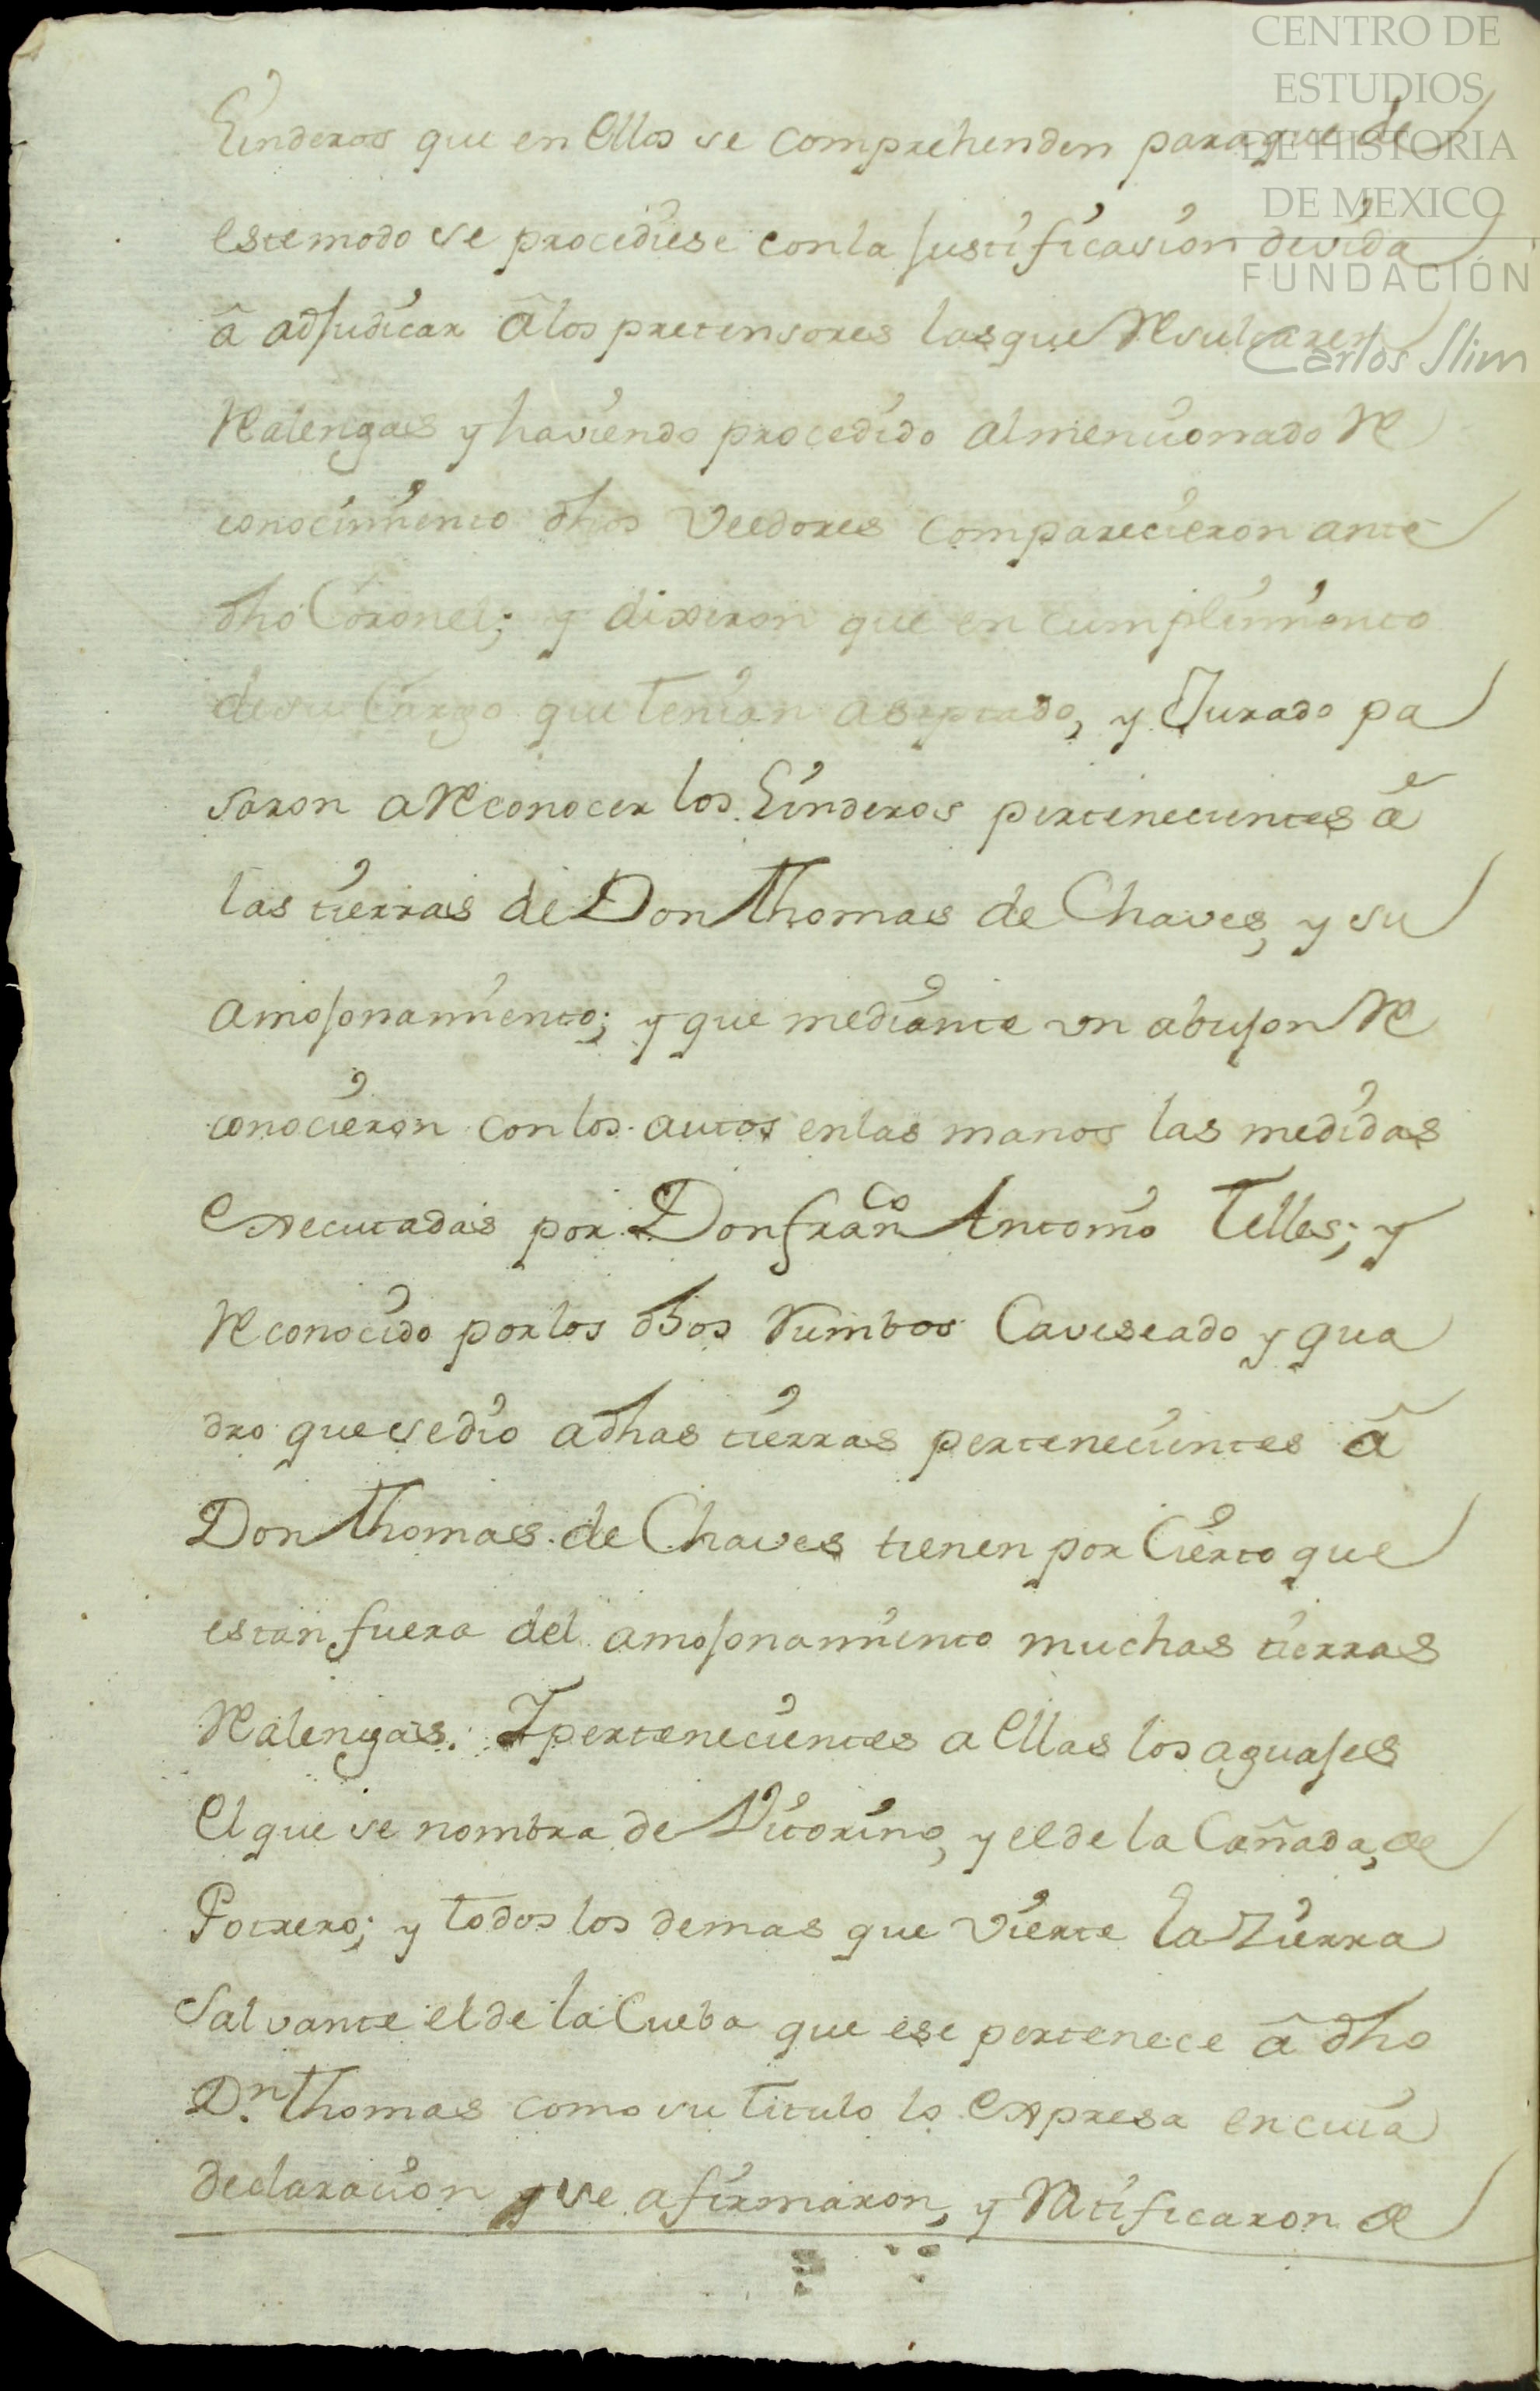 CENTRO DE
ESTUDIOS
DE HISTORIA
DE MEXICO
FUNDACIÓN
Carlos Slim
Linderos que en ellos se comprehenden paraque de
estemodo se procediese conla justificasion devida
â adjudicar âlos pretensores lasque Resultaren
Realengas y haviendo procedido almencionado Re
conocimiento dhos Veedores comparecieron ante
dho Coronel; y dixeron que en cumplimiento
desu Cargo que Tenian aseptado, y Jurado pa
saron a Reconocer los Linderos pertenecientes â
las tierras de Don Thomas de Chaves, y su
amojonamiento; y que mediante un abujon Re
conocieron con los autos enlas manos las medidas
executadas por Don franco Antonio Telles; y
Reconocido porlos dhos Rumbos Caveseado y qua
dro que sedio adhas tierras pertenecientes â
Don Thomas de Chaves tienen por Cierto que
estan fuera del amojonamiento muchas tierras
Realengas. Ypertenecientes a ellas los aguajes
el que se nombra de Vitorino, y el de la Cañada, de
Potrero; y todos los demas que vierte la Tierra
Salvante el de la Cueba que ese pertenece â dho
Dn. Thomas como su titulo lo expresa en cuia
declaracion que afirmaron, y Ratificaron de